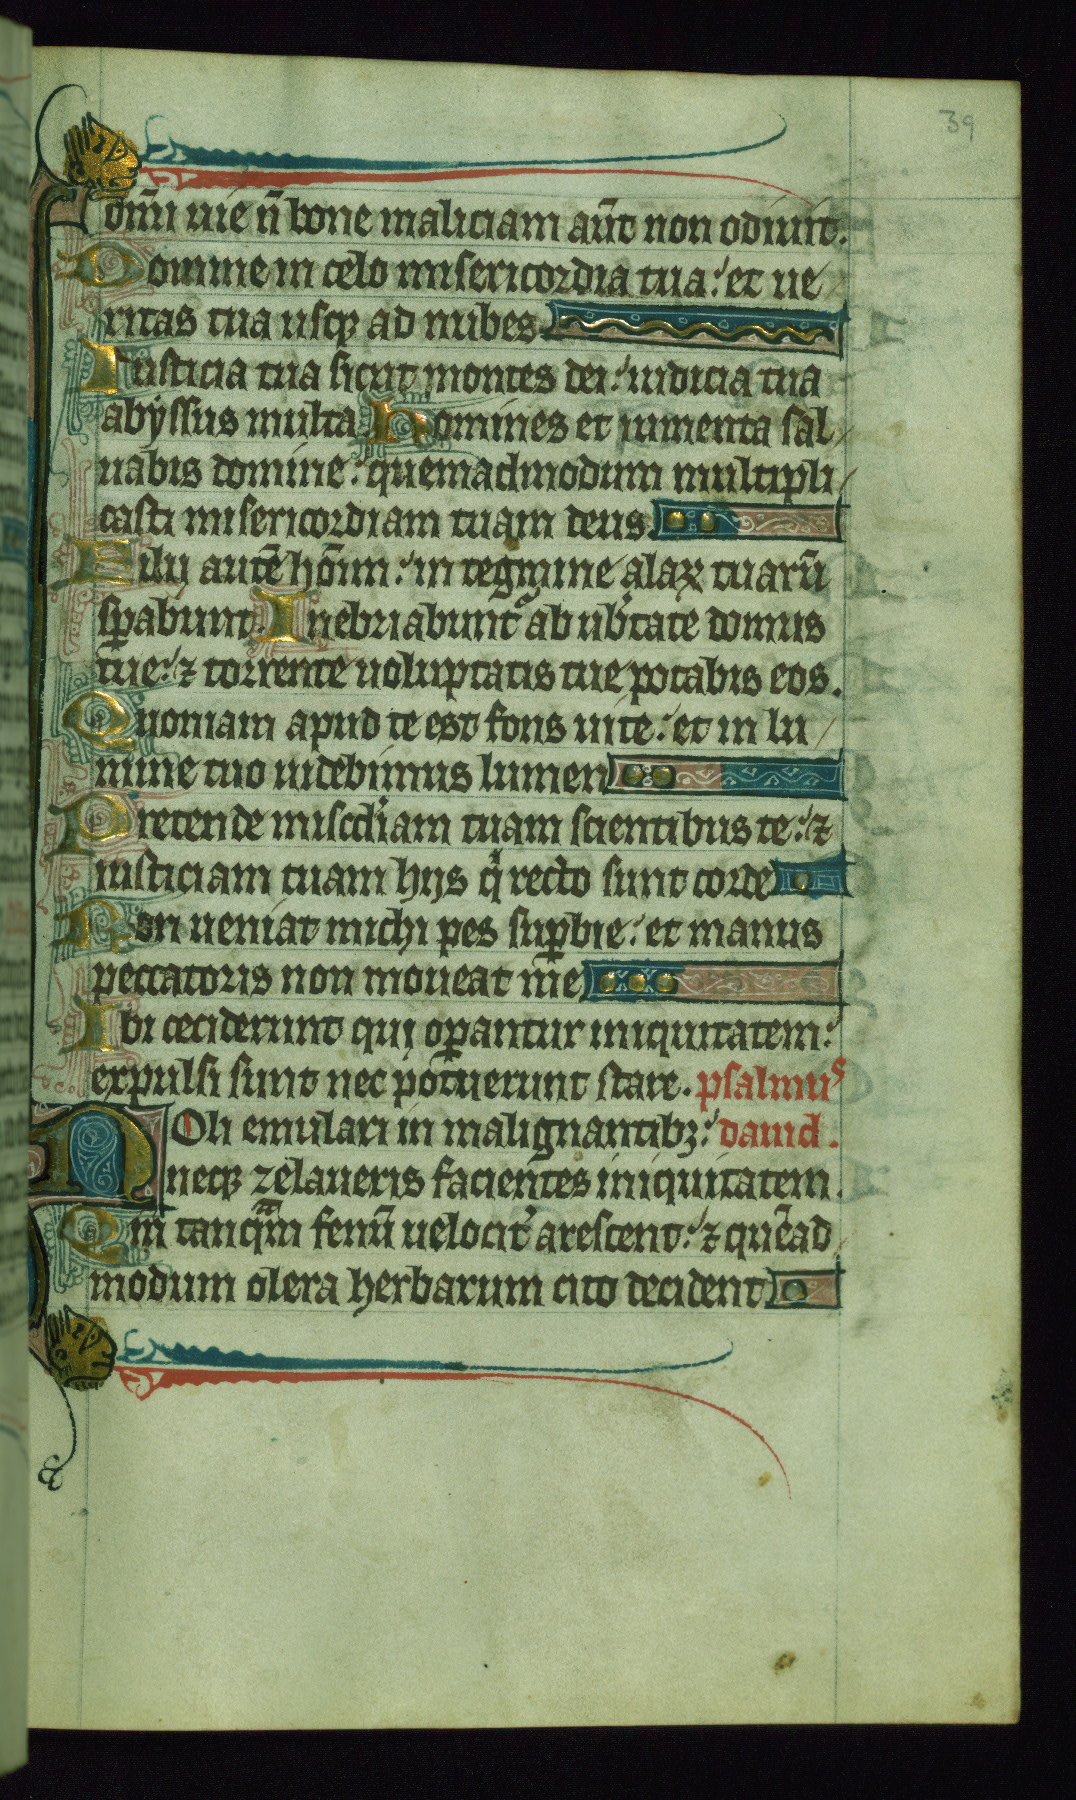 39
om̄i uie n̄ bone maliciam aūt non odiuit.
Domine in celo misericordia tua: et ue
ritas tua usqꝫ ad nubes
Iusticia tua sicut montes dei: iudicia tua
abyssus multa Homines et iumenta sal
uabis domine: quemadmodum multipli
casti misericordiam tuam deus.
Filij autē hoīm: in tegmine alaꝝ tuarū
sꝑabunt. Inebriabunt᷑ ab ub̾tate domus
tue: ⁊ torrente uoluptatis tue potabis eos.
Quoniam apud te est fons uite: et in lu
mine tuo uidebimus lumen
Pretende misc̄diam tuam scientibus te: ⁊
iusticiam tuam hijs qͥ recto sunt corde
Non ueniat michi pes suꝑbie: et manus
peccatoris non moueat me
Ibi ceciderunt qui oꝑantur iniquitatem:
expulsi sunt nec potuerunt stare. psalmus
Noli emulari in malignantibꝫ: dauid.
neqꝫ zelaueris facientes iniquitatem.
Qm̄ tanqᵃm fenū uelocit̾ arescent: ⁊ quēad
modum olera herbarum cito decident